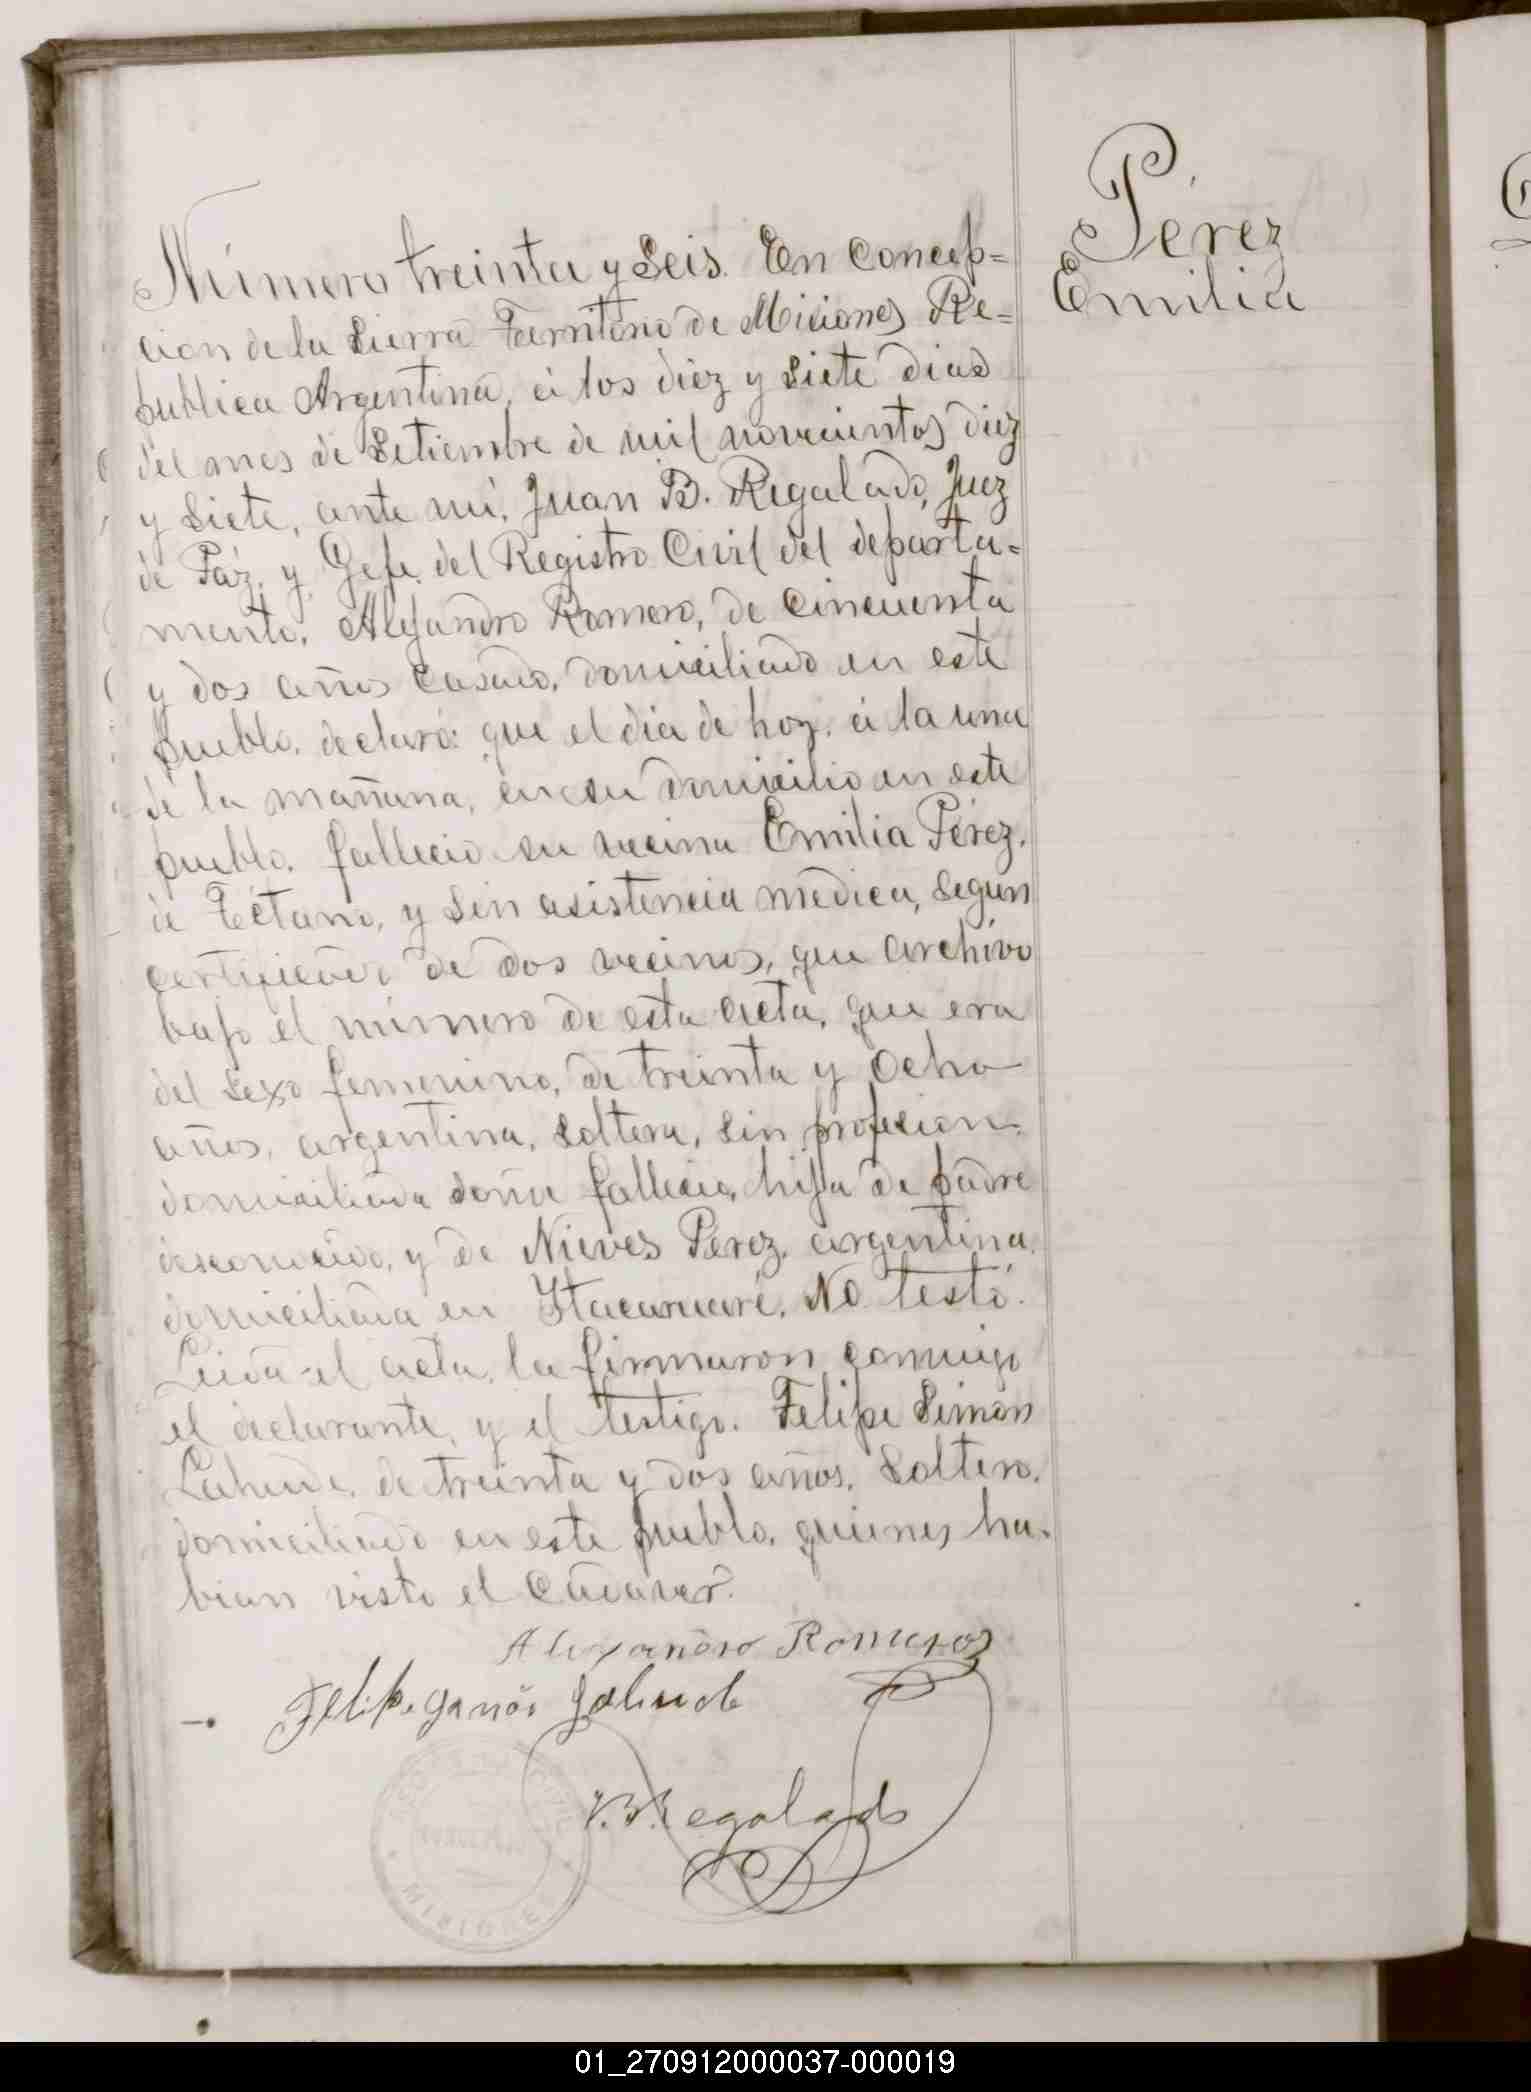 Pérez
Emilia
Número treinta y seis. En Concep=
cion de la Sierra Territorio de Misiones Re=
publica Argentina, á los diez y siete dias
del mes de Setiembre de mil novecientos diez
y siete, ante mi, Juan B. Regalado, Juez
de Páz, y Gefe del Registro Civil del departa=
mento, Alejandro Romero, de cincuenta
y dos años casado, domiciliado en este
pueblo, declaró: que el dia de hoy, á la una
de la mañana, en su domicilio en este
pueblo, fallecio su vecina Emilia Pérez,
de Tétano, y sin asistencia medica, segun
certificado de dos vecinos, que archivo
bajo el número de esta acta, que era
del sexo femenino, de treinta y ocho
años, argentina, soltera, sin profesion,
domiciliada donde fallecio, hija de padre
desconocido, y de Nieves Pérez, argentina,
domiciliada en Itacaruaré. No testó.
Leida el acta, la firmaron conmigo
el declarante, y el testigo. Felipe Simón
de treinta y dos años, soltero,
domiciliado en este pueblo, quienes ha=
bian visto el cadaver.
Alejandro Romero
Felipe
J.B. Regalado
MISIONES
01_270912000037-000019